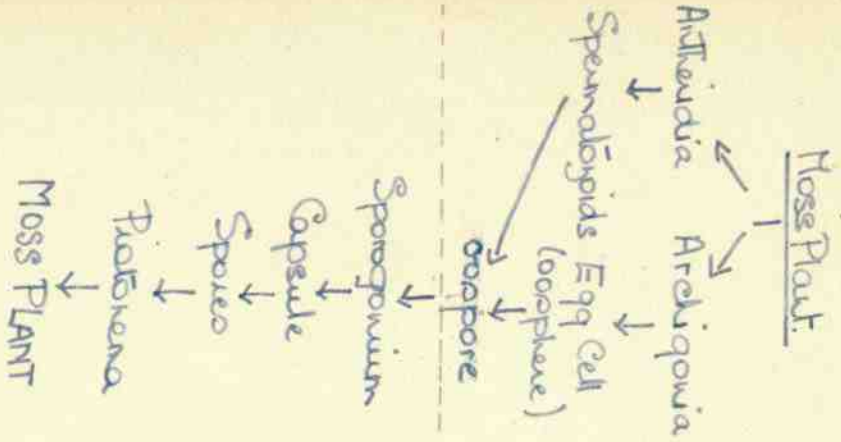 Moss Plant.
Antheridia Archigonia
Spermatozoids Egg Cell
(oosphere)
oospore
Sporogonium
Capsule
Spores
Protonema
MOSS PLANT